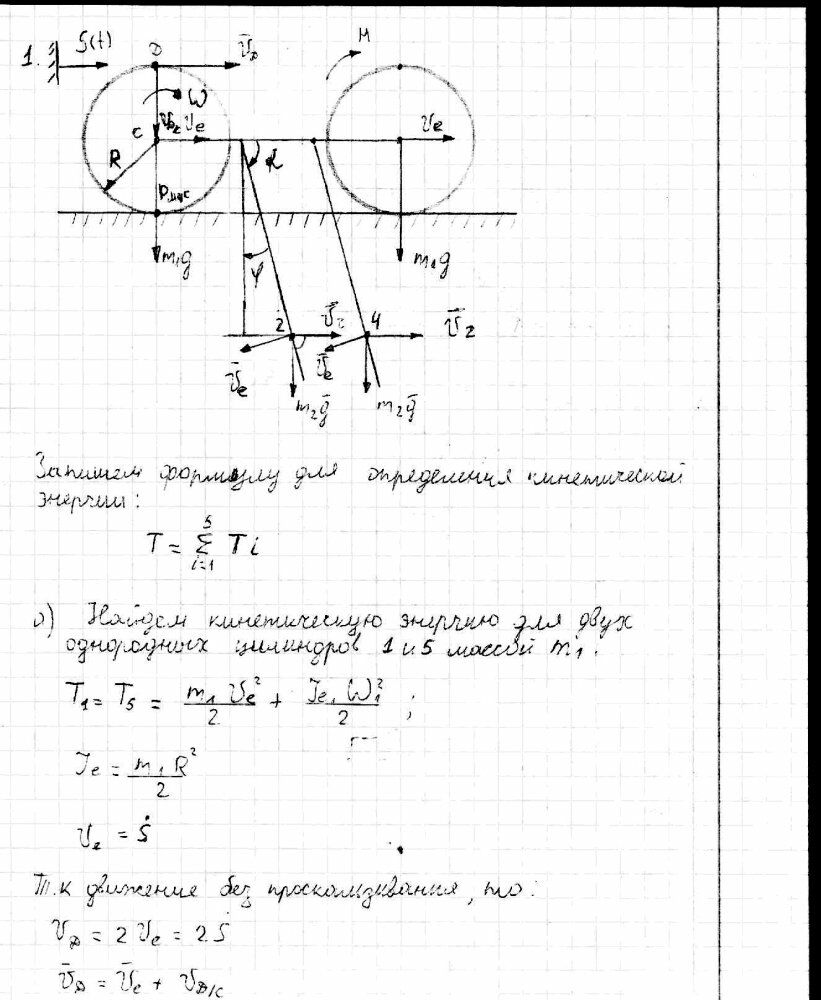 1.
S(t)
D
V̄D
M
ω
C
Ve
Ve
R
α
Pмцс
m₁g
m₁g
φ
2
V̄r
4
V̄2
V̄e
V̄e
m₂ḡ
m₂ḡ
Запишем формулу для определения кинетической
энергии:
T = Σ Ti
5
i=1
а) Найдем кинетическую энергию для двух
однородных цилиндров 1 и 5 массой m₁.
T₁ = T₅ = m₁Ve²/2 + Je₁ω₁²/2 ;
Je = m₁R²/2
Ve = Ṡ
Т.к движение без проскальзывания, то:
VD = 2Ve = 2Ṡ
V̄D = V̄e + VD/C